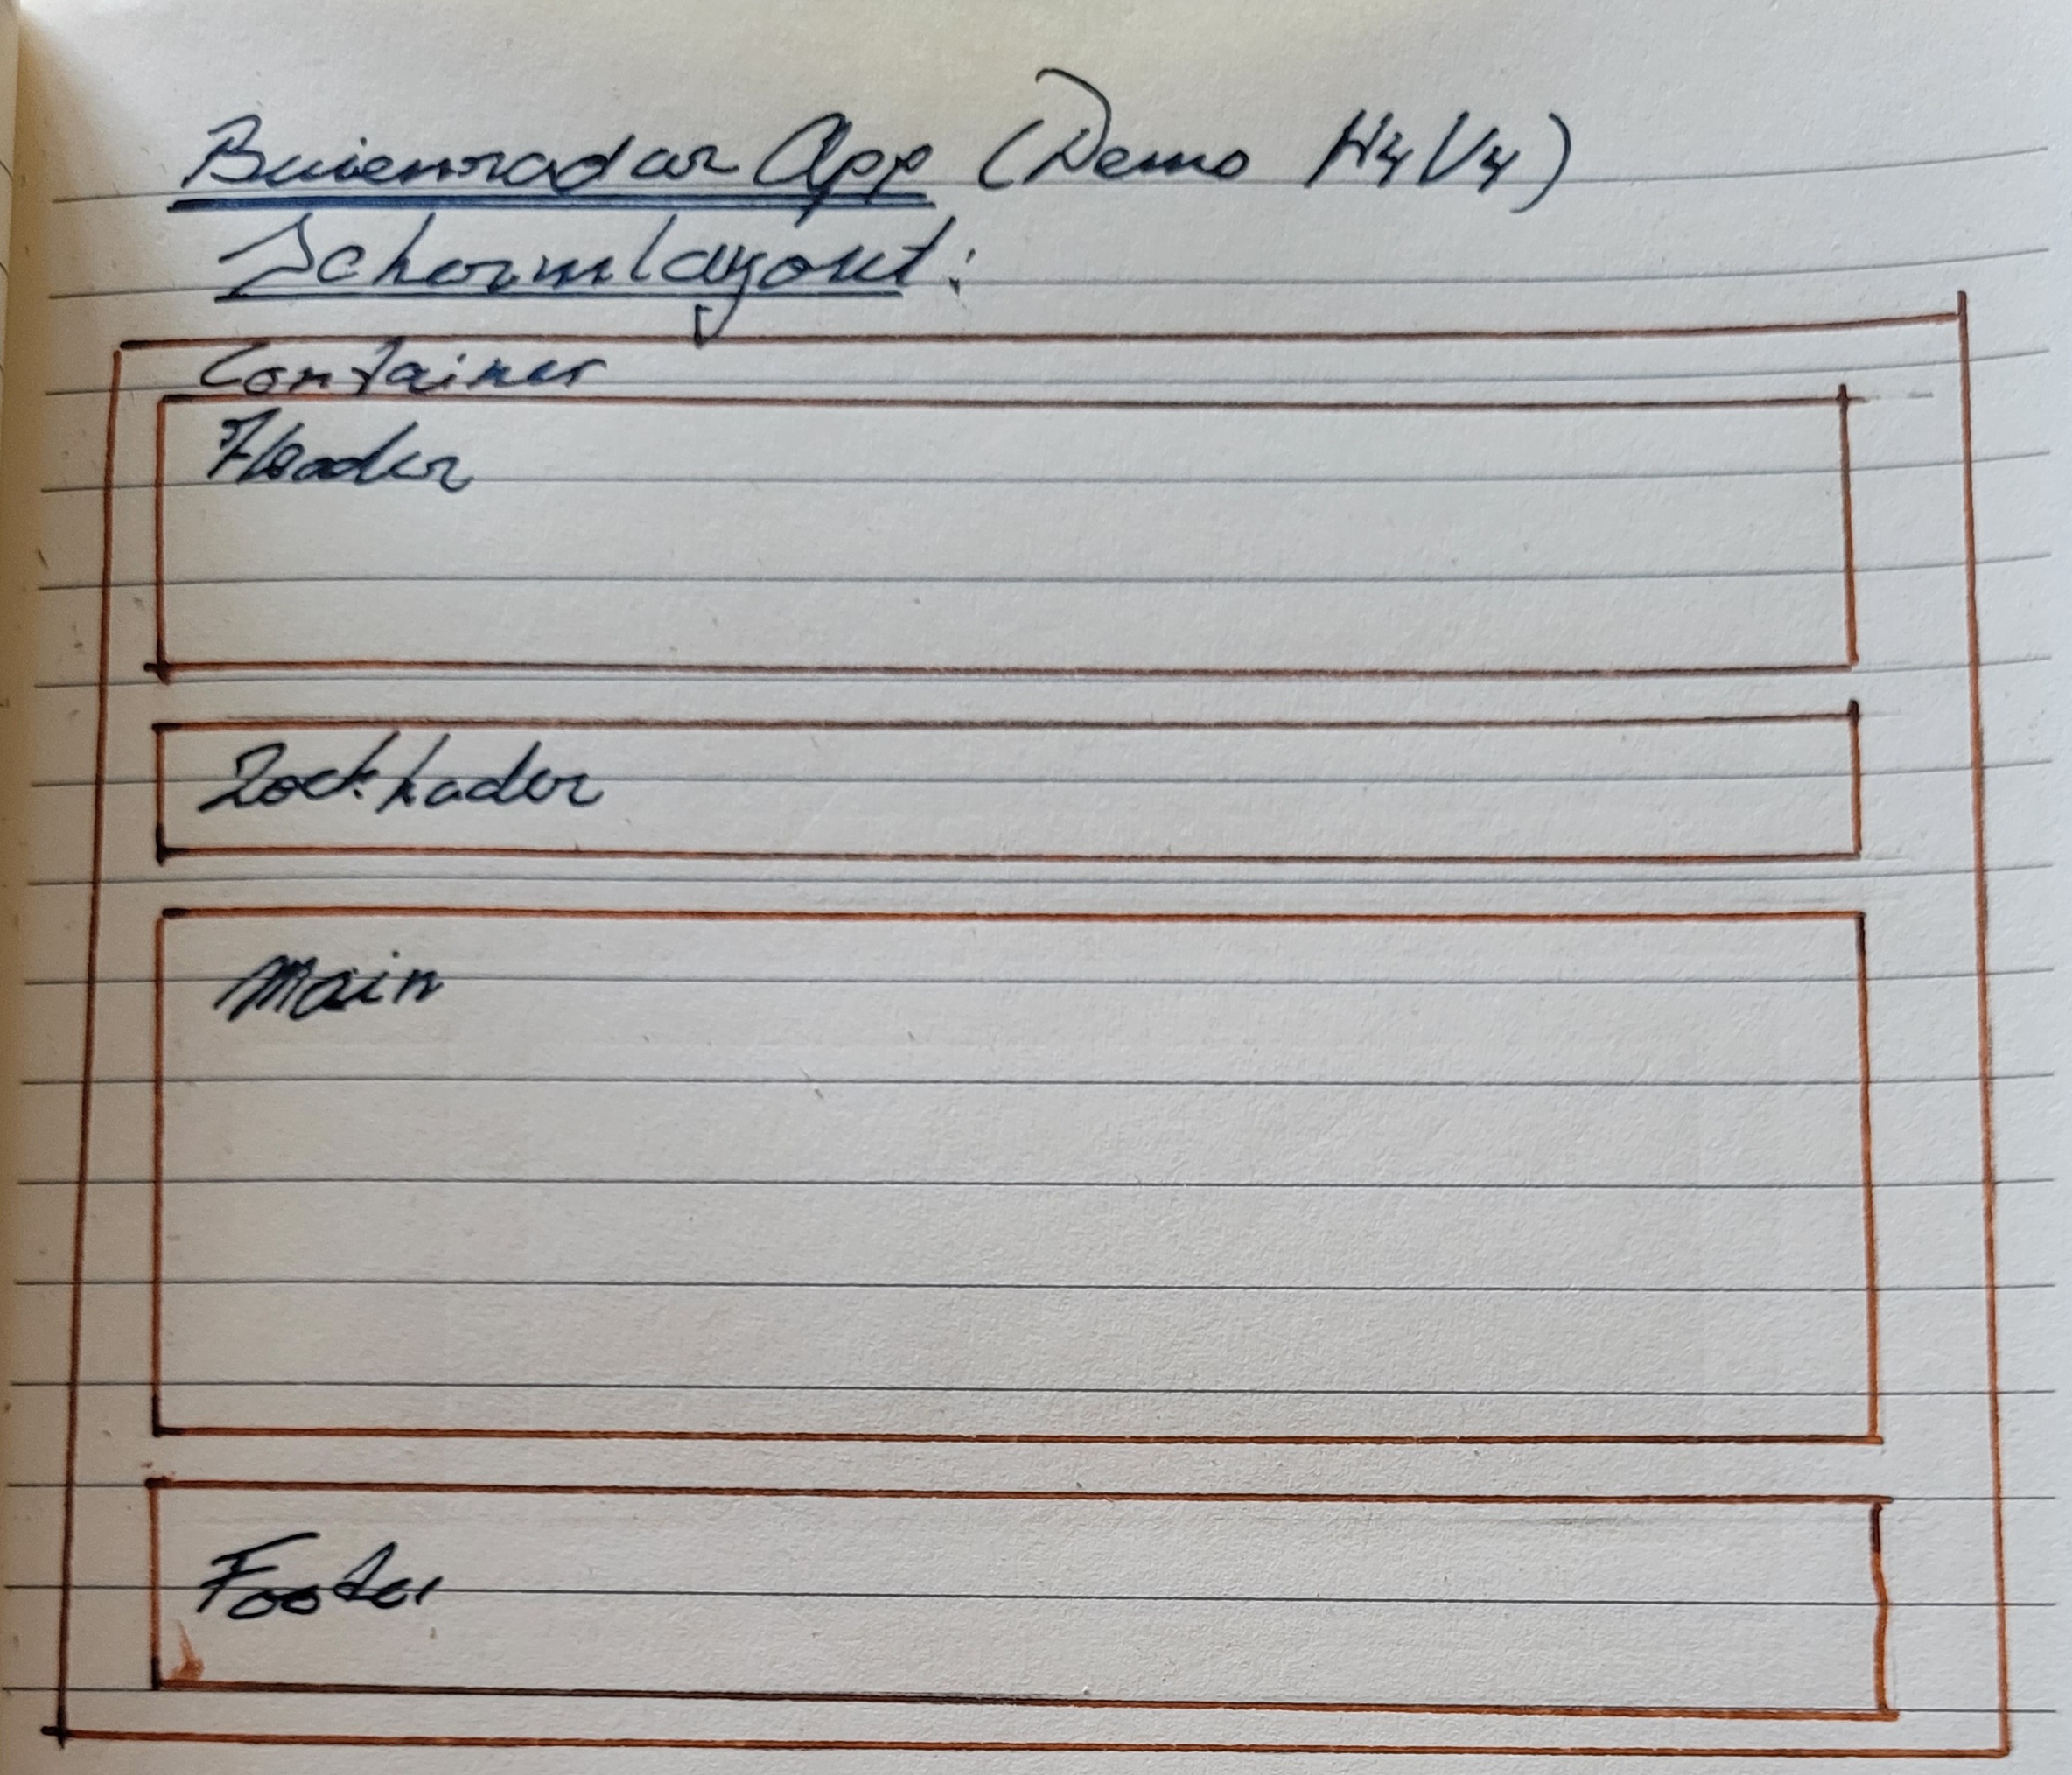 Buienradar App (Demo H4V4)
Schermlayout:
Container
Header
Zoekhader
Main
Footer